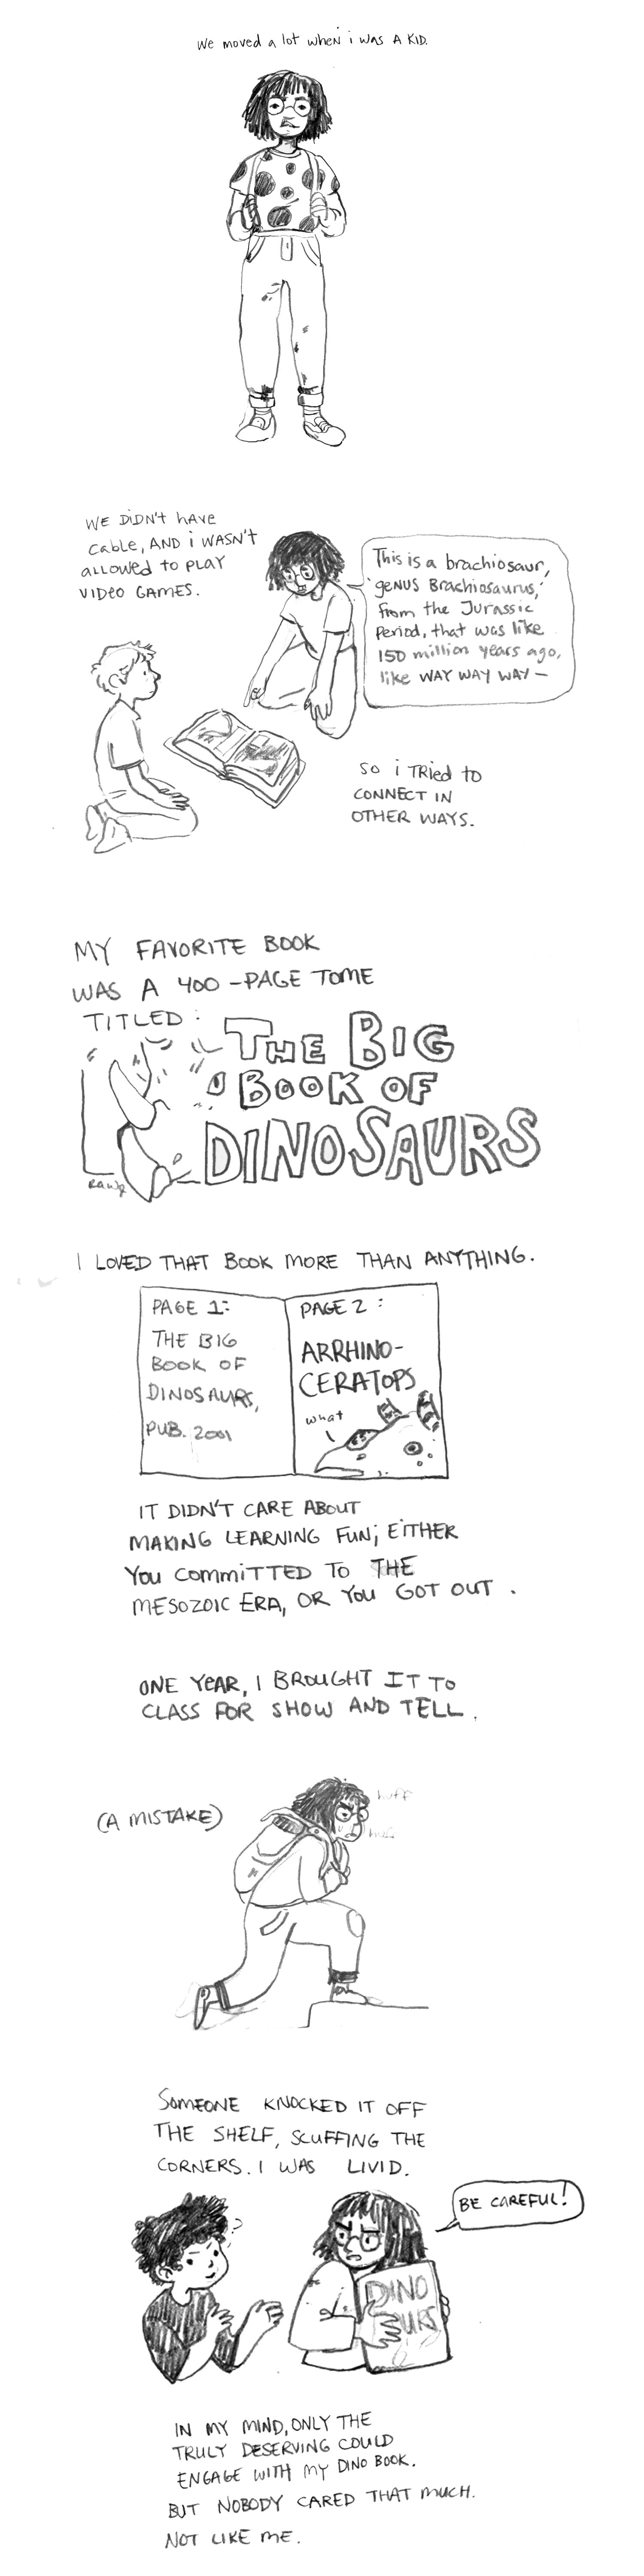 We moved a lot when i was A KID.
WE DiDN't hAVe
cable, AND i WASN't
aLLOWed to PLAY
VIDeo GAMES.
This is a brachiosaur,
'geNUS Brachiosaurus,'
from the Jurassic
Period, that was like
150 million years ago,
like WAY WAY WAY —
SO i TRied to
CONNECT IN
OTHER WAYS.
MY FAVORITE BOOK
WAS A 400-PAGE TOME
TITLED:
THE BIG
BOOK OF
DINOSAURS
RAWR
I LOVED THAT BOOK MORE THAN ANYTHING.
PAGE 1:
THE BIG
BOOK OF
DINOSAURS,
PUB. 2001
PAGE 2:
ARRHINO-
CERATOPS
what
IT DIDN'T CARE ABOUT
MAKING LEARNING FUN; EITHER
YOU COMMITTED TO THE
MESOZOIC ERA, OR YOU GOT OUT.
ONE YEAR, I BROUGHT IT TO
CLASS FOR SHOW AND TELL.
(A MISTAKE)
huff
huff
SOMEONE KNOCKED IT OFF
THE SHELF, SCUFFING THE
CORNERS. I WAS LIVID.
BE CAREFUL!
?
DINO
SAURS
IN MY MIND, ONLY THE
TRULY DESERVING COULD
ENGAGE WITH MY DINO BOOK.
BUT NOBODY CARED THAT MUCH.
NOT LIKE ME.